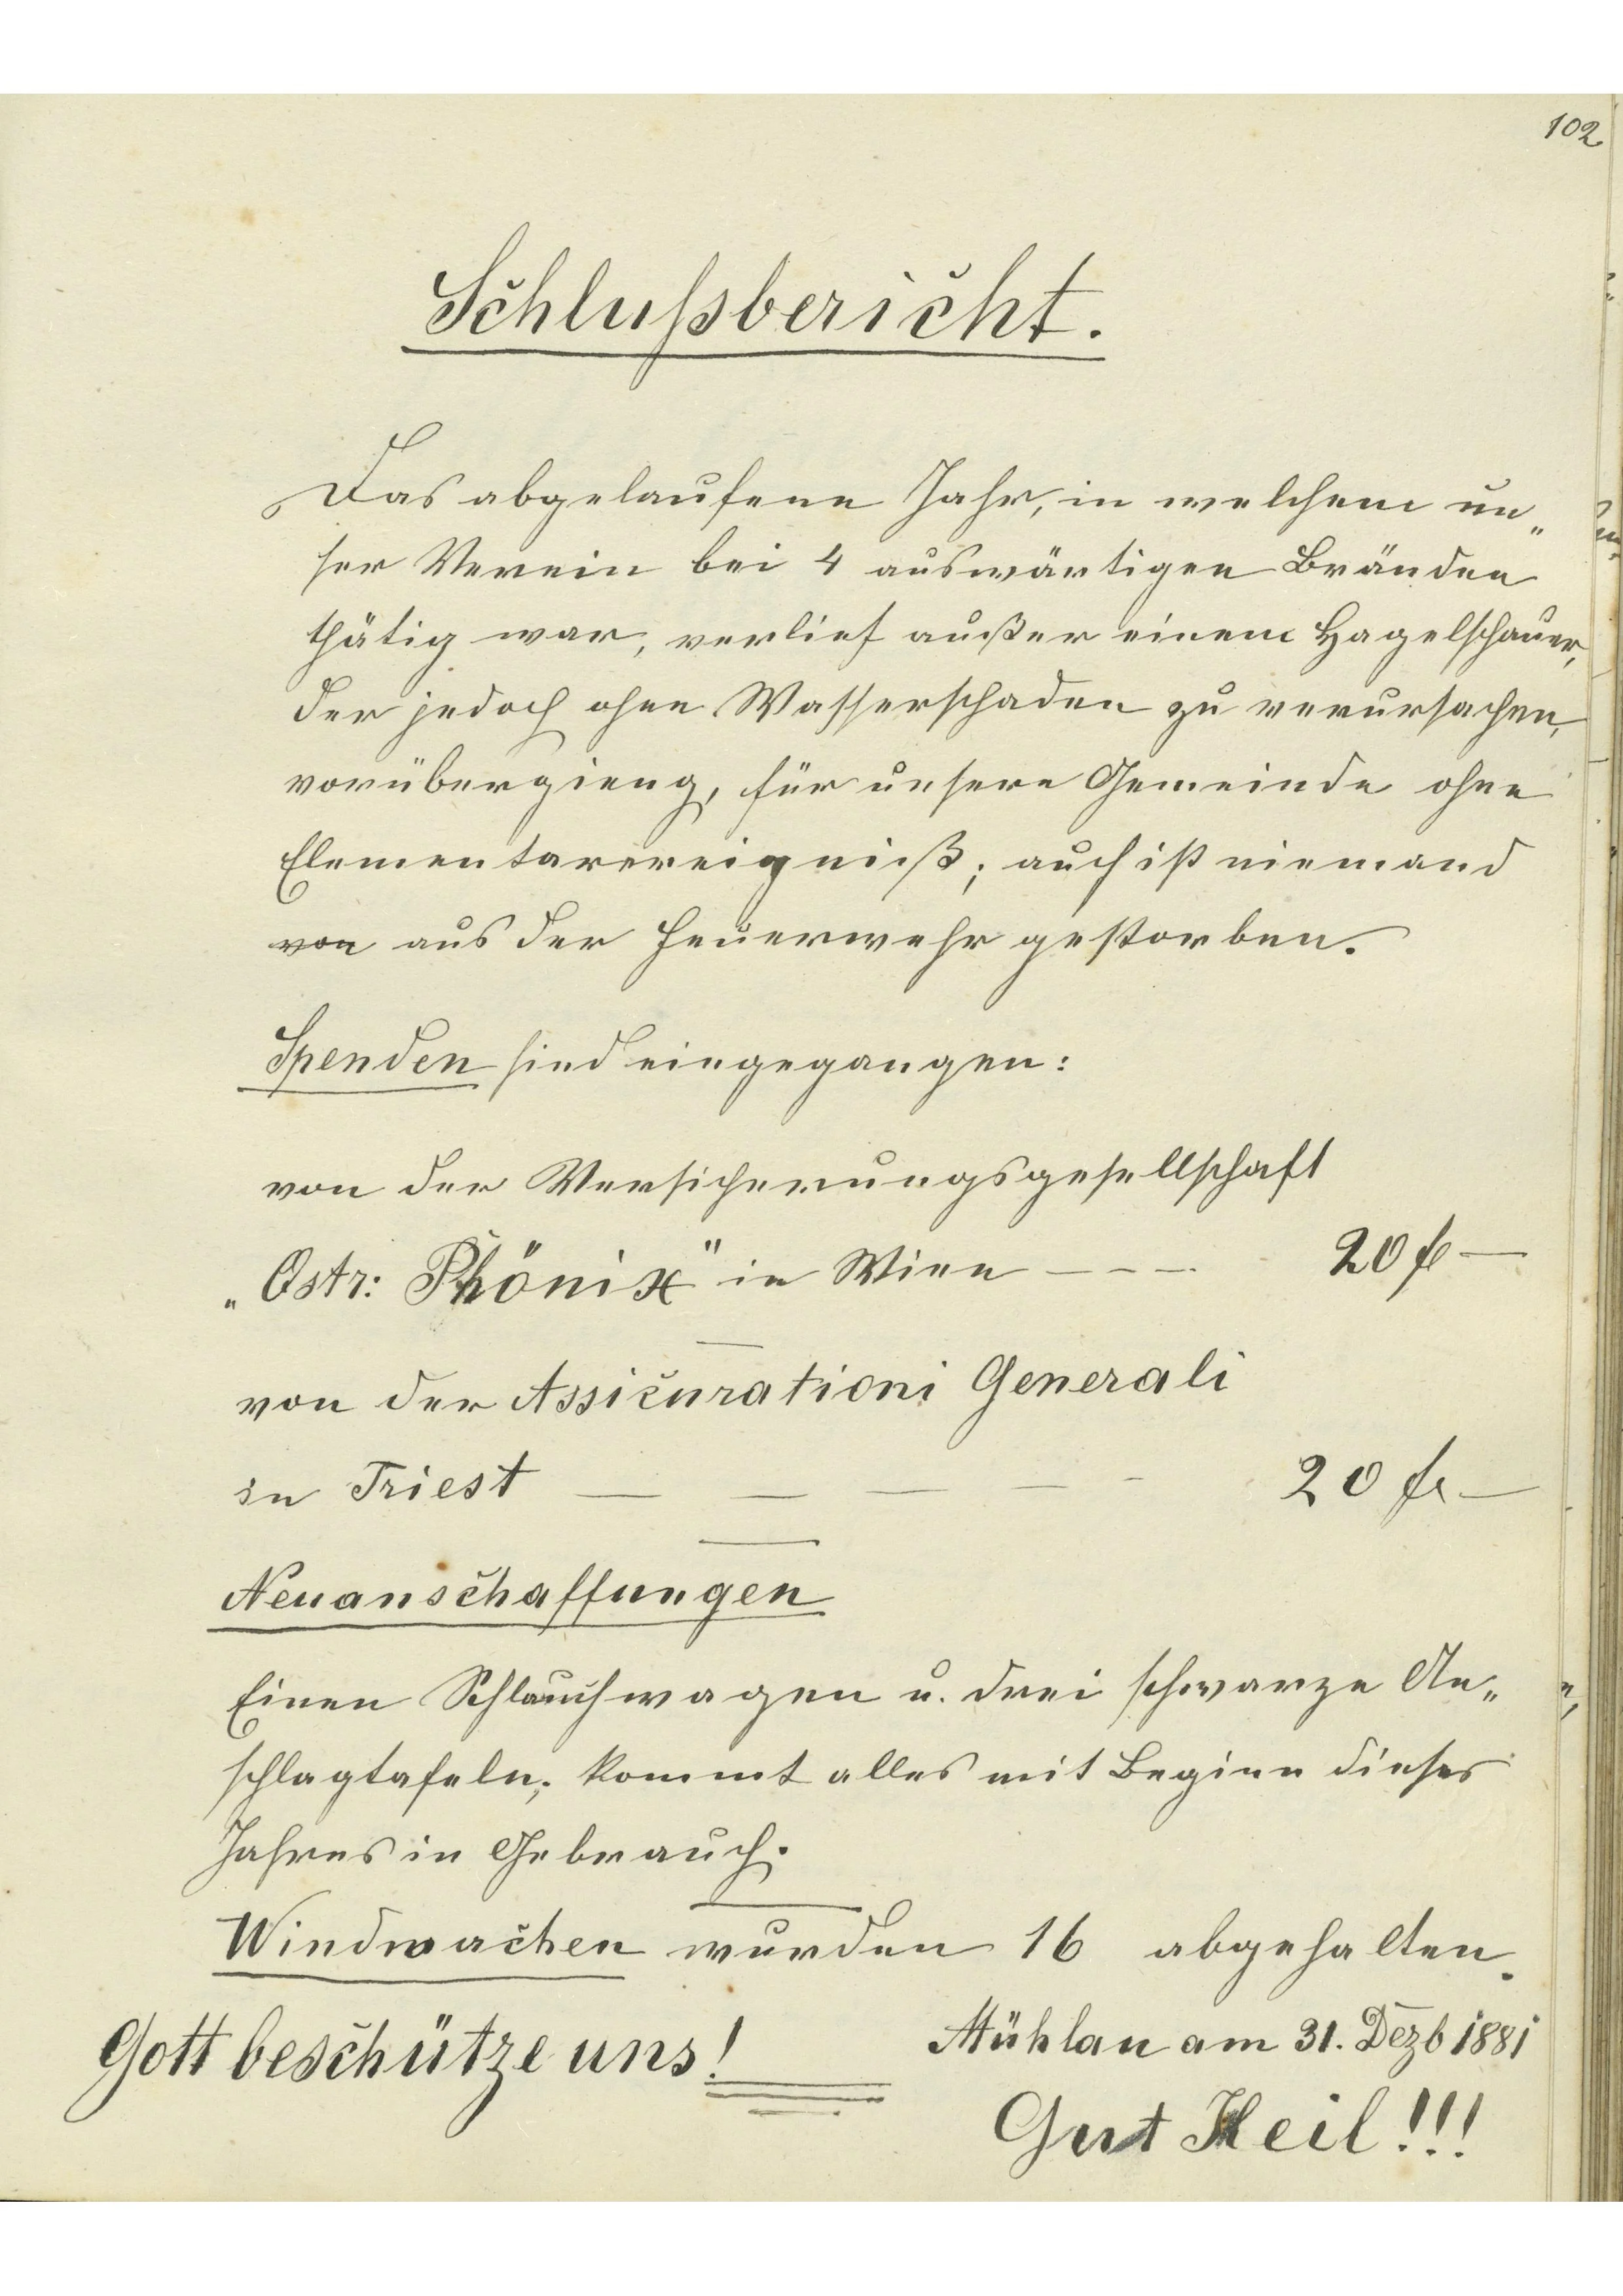 102
Schlußbericht.
Das abgelaufene Jahr, in welchem un„
ser Verein bei 4 auswärtigen Bränden
thätig war, verlief außer einem Hagelschauer,
der jedoch ohne Wasserschaden zu verursachen,
vorübergieng, für unsere Gemeinde ohne
Elementarereigniß; auch ist niemand
von aus der Feuerwehr gestorben.
Spenden sind eingegangen:
von der Versicherungsgesellschaft
„Östr: Phönix" in Wien - - - 20 fl —
von der Assicurationi Generali
in Triest — — — — - 20 fl —
Neuanschaffungen
Einen Schlauchwagen u. drei schwarze An„
schlagtafeln; kommt alles mit Beginn dieses
Jahres in Gebrauch.
Windwachen wurden 16 abgehalten.
Gott beschütze uns!
Mühlau am 31. Dezb 1881
Gut Heil!!!